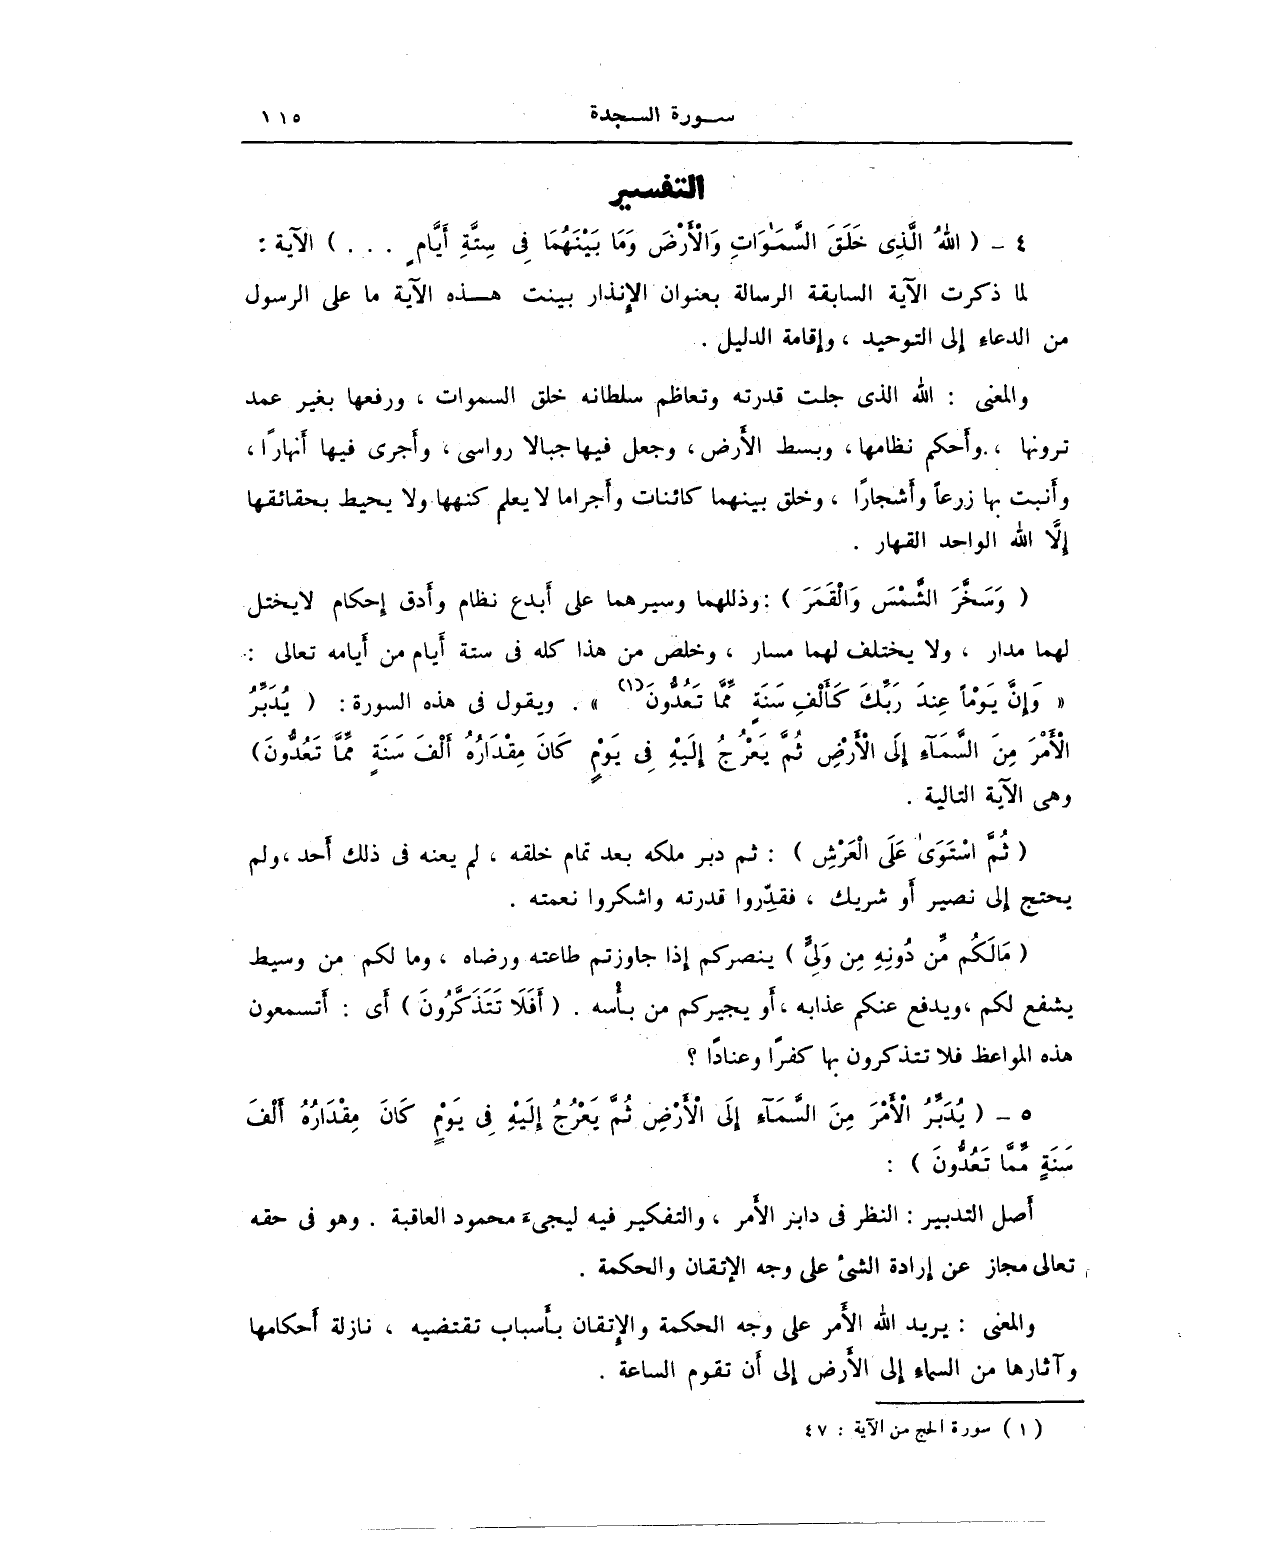 سورة السجدة ١١٥
التفسير
٤ - ( اللهُ الَّذِى خَلَقَ السَّمَٰوَاتِ وَالْأَرْضَ وَمَا بَيْنَهُمَا فِى سِتَّةِ أَيَّامٍ . . . ) الآية :
لما ذكرت الآية السابقة الرسالة بعنوان الإنذار بينت هذه الآية ما على الرسول
من الدعاء إلى التوحيد ، وإقامة الدليل .
والمعنى : الله الذى جلت قدرته وتعاظم سلطانه خلق السموات ، ورفعها بغير عمد
ترونها ، وأحكم نظامها ، وبسط الأرض ، وجعل فيها جبالا رواسى ، وأجرى فيها أنهارًا ،
وأنبت بها زرعاً وأشجارًا ، وخلق بينهما كائنات وأجراما لا يعلم كنهها ولا يحيط بحقائقها
إلَّا الله الواحد القهار .
( وَسَخَّرَ الشَّمْسَ وَالْقَمَرَ ) : وذللهما وسيرهما على أبدع نظام وأدق إحكام لايختل
لهما مدار ، ولا يختلف لهما مسار ، وخلص من هذا كله فى ستة أيام من أيامه تعالى :
« وَإِنَّ يَوْماً عِندَ رَبِّكَ كَأَلْفِ سَنَةٍ مِّمَّا تَعُدُّونَ(١) » . ويقول فى هذه السورة : ( يُدَبِّرُ
الْأَمْرَ مِنَ السَّمَآءِ إِلَى الْأَرْضِ ثُمَّ يَعْرُجُ إِلَيْهِ فِى يَوْمٍ كَانَ مِقْدَارُهُ أَلْفَ سَنَةٍ مِّمَّا تَعُدُّونَ )
وهى الآية التالية .
( ثُمَّ اسْتَوَىٰ عَلَى الْعَرْشِ ) : ثم دبر ملكه بعد تمام خلقه ، لم يعنه فى ذلك أحد ، ولم
يحتج إلى نصير أو شريك ، فقدِّروا قدرته واشكروا نعمته .
( مَالَكُم مِّن دُونِهِ مِن وَلِىٍّ ) ينصركم إذا جاوزتم طاعته ورضاه ، وما لكم من وسيط
يشفع لكم ، ويدفع عنكم عذابه ، أو يجيركم من بأسه . ( أَفَلَا تَتَذَكَّرُونَ ) أى : أتسمعون
هذه المواعظ فلا تتذكرون بها كفرًا وعنادًا ؟
٥ - ( يُدَبِّرُ الْأَمْرَ مِنَ السَّمَآءِ إِلَى الْأَرْضِ ثُمَّ يَعْرُجُ إِلَيْهِ فِى يَوْمٍ كَانَ مِقْدَارُهُ أَلْفَ
سَنَةٍ مِّمَّا تَعُدُّونَ ) :
أصل التدبير : النظر فى دابر الأمر ، والتفكير فيه ليجىء محمود العاقبة . وهو فى حقه
تعالى مجاز عن إرادة الشىء على وجه الإتقان والحكمة .
والمعنى : يريد الله الأمر على وجه الحكمة والإتقان بأسباب تقتضيه ، نازلة أحكامها
وآثارها من السماء إلى الأرض إلى أن تقوم الساعة .
( ١ ) سورة الحج من الآية : ٤٧